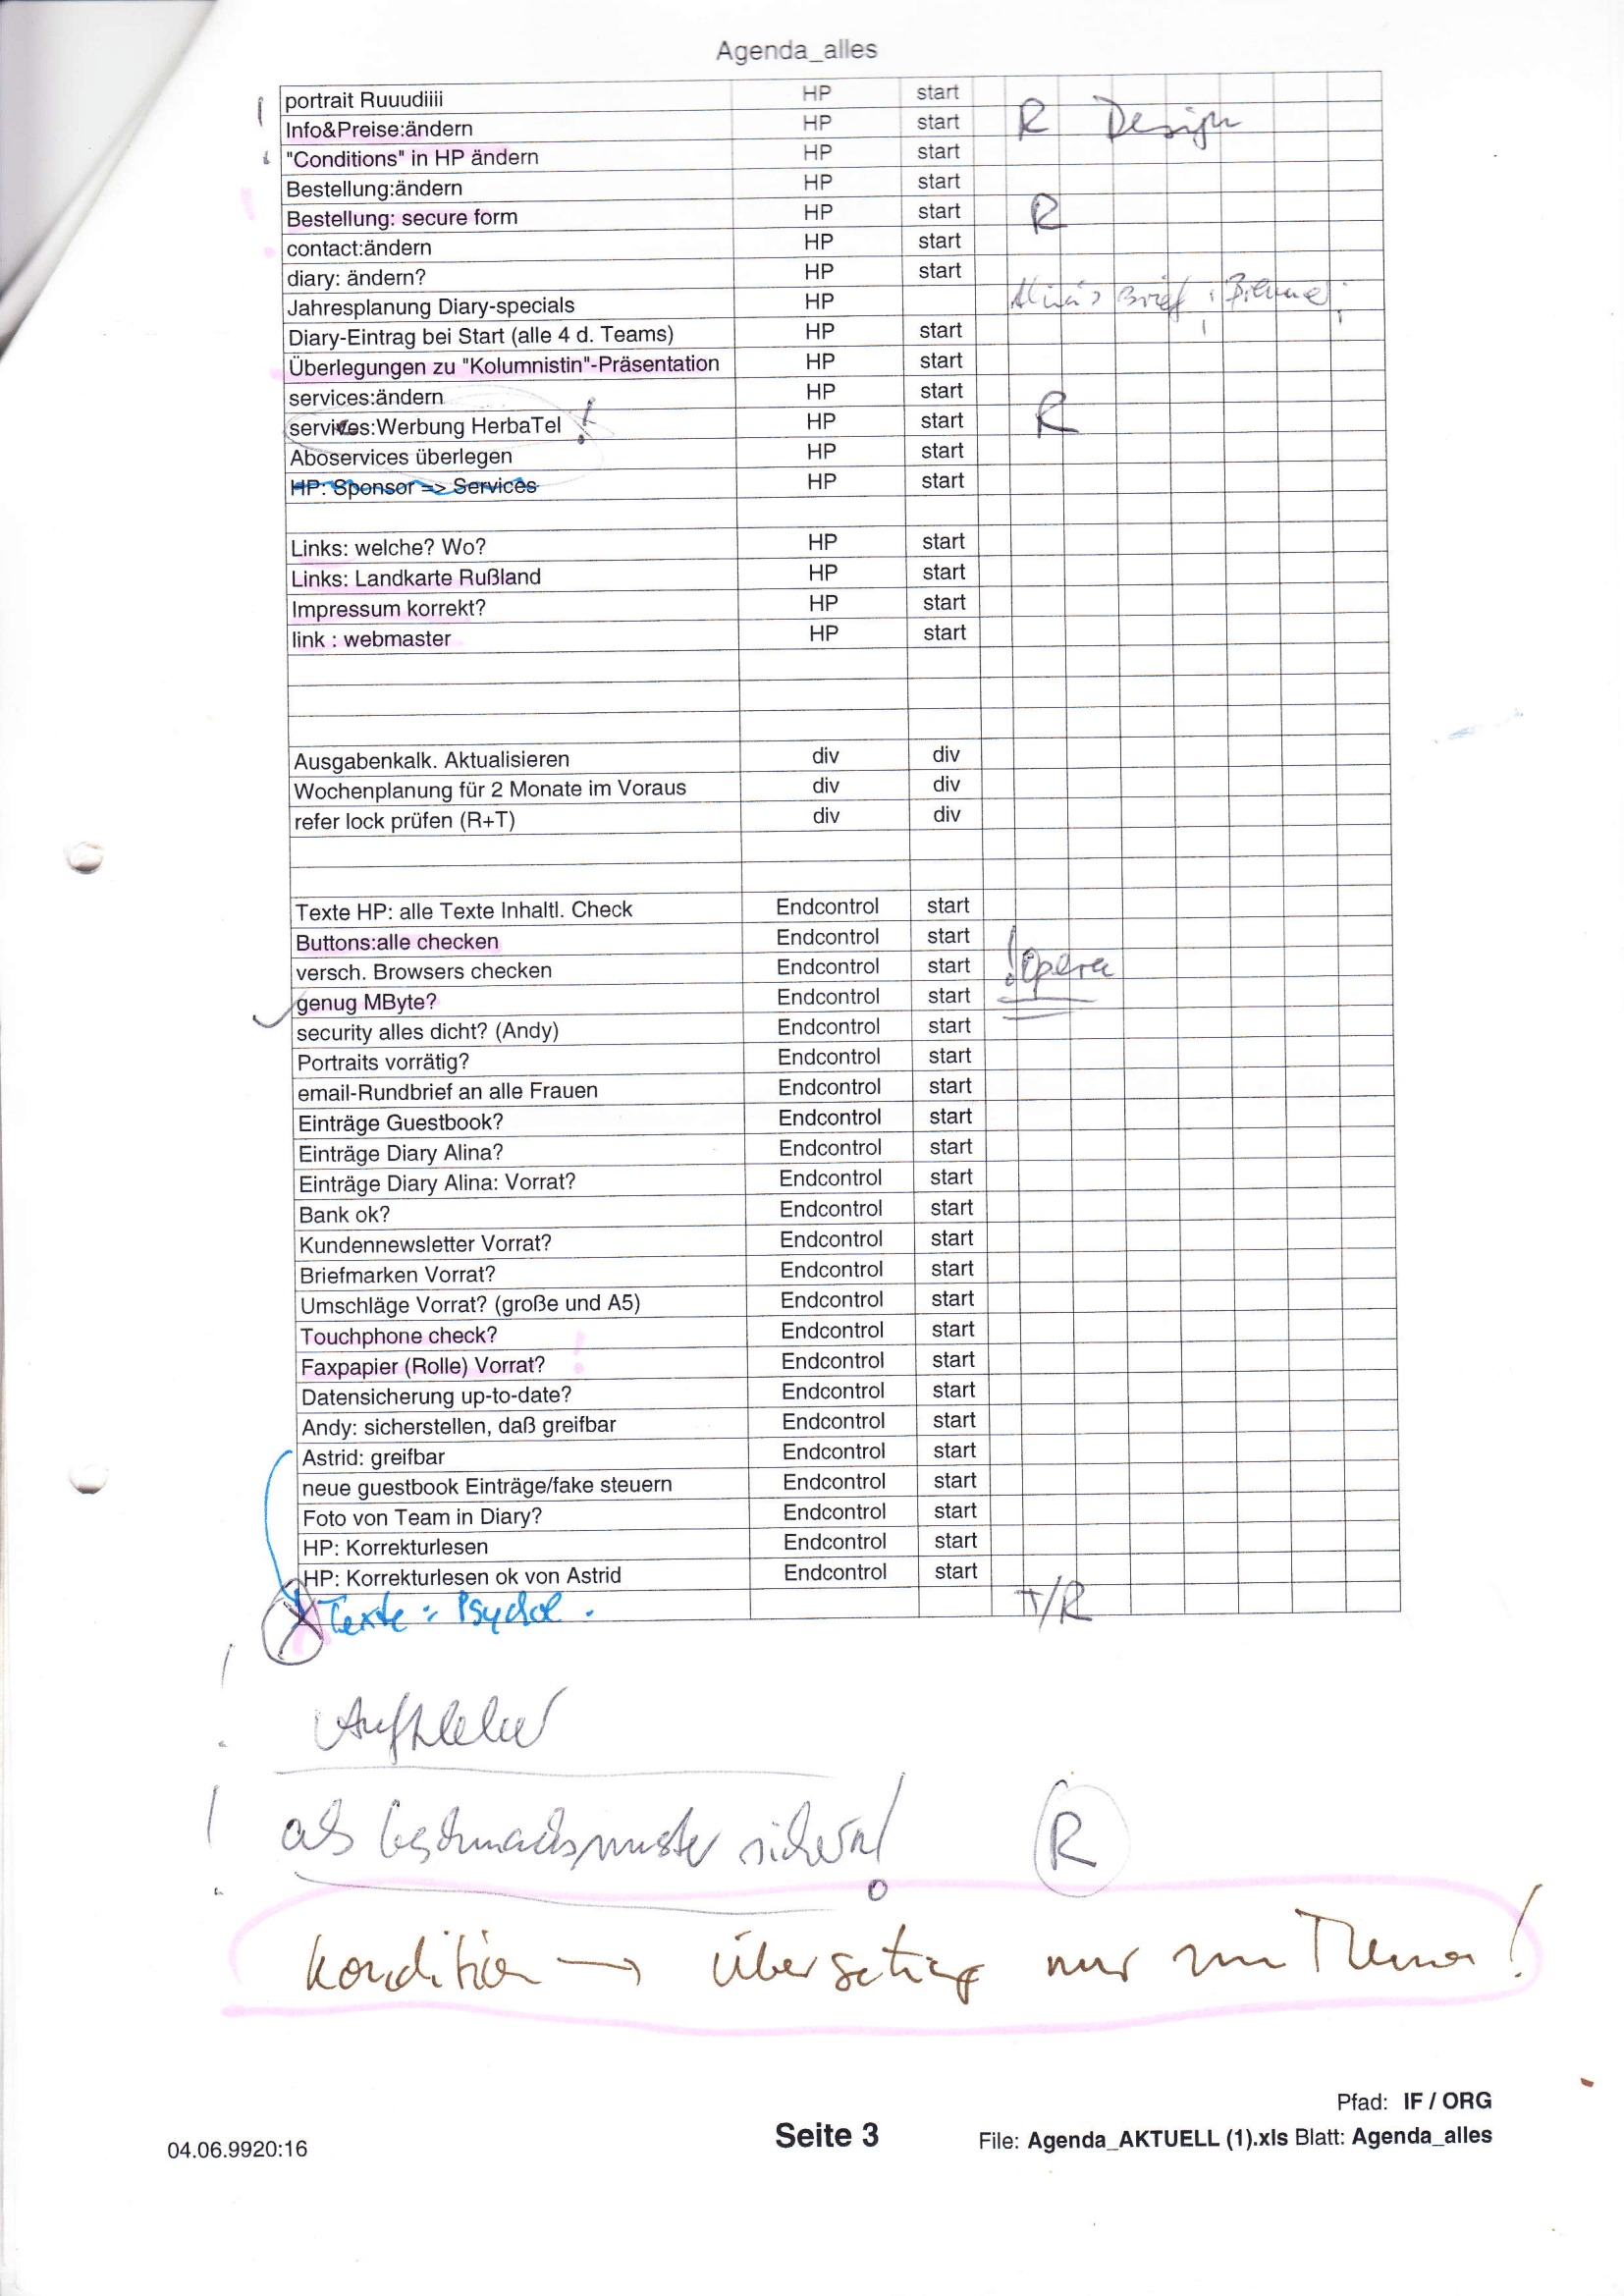 Agenda_alles
portrait Ruuudiiii HP start
Info&Preise:ändern HP start R Design
"Conditions" in HP ändern HP start
Bestellung:ändern HP start
Bestellung: secure form HP start R
contact:ändern HP start
diary: ändern? HP start
Jahresplanung Diary-specials HP Alina's Brief
Diary-Eintrag bei Start (alle 4 d. Teams) HP start
Überlegungen zu "Kolumnistin"-Präsentation HP start
services:ändern HP start
services:Werbung HerbaTel ! HP start R
Aboservices überlegen HP start
HP: Sponsor => Services HP start
Links: welche? Wo? HP start
Links: Landkarte Rußland HP start
Impressum korrekt? HP start
link : webmaster HP start
Ausgabenkalk. Aktualisieren div div
Wochenplanung für 2 Monate im Voraus div div
refer lock prüfen (R+T) div div
Texte HP: alle Texte Inhaltl. Check Endcontrol start
Buttons:alle checken Endcontrol start
versch. Browsers checken Endcontrol start ! Opera
genug MByte? Endcontrol start
security alles dicht? (Andy) Endcontrol start
Portraits vorrätig? Endcontrol start
email-Rundbrief an alle Frauen Endcontrol start
Einträge Guestbook? Endcontrol start
Einträge Diary Alina? Endcontrol start
Einträge Diary Alina: Vorrat? Endcontrol start
Bank ok? Endcontrol start
Kundennewsletter Vorrat? Endcontrol start
Briefmarken Vorrat? Endcontrol start
Umschläge Vorrat? (große und A5) Endcontrol start
Touchphone check? Endcontrol start
Faxpapier (Rolle) Vorrat? ! Endcontrol start
Datensicherung up-to-date? Endcontrol start
Andy: sicherstellen, daß greifbar Endcontrol start
Astrid: greifbar Endcontrol start
neue guestbook Einträge/fake steuern Endcontrol start
Foto von Team in Diary? Endcontrol start
HP: Korrekturlesen Endcontrol start
HP: Korrekturlesen ok von Astrid Endcontrol start
Texte: Psychol. T/R
Aufkleber
als Geschmacksmuster sichern! R
Kondition → Übersetzung nur zum Thema!
Pfad: IF / ORG
04.06.9920:16 Seite 3 File: Agenda_AKTUELL (1).xls Blatt: Agenda_alles